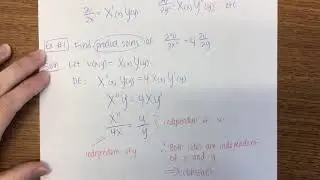 ∂u/∂x = X'(x) Y(y)
Ex #1 Find product solns of ∂²u/∂x² = 4 ∂u/∂y
Soln Let u(x,y) = X(x) Y(y)
DE: X''(x) Y(y) = 4 X(x) Y'(y)
X''Y = 4XY'
X''/4X = Y'/Y independent of x
independent of y
* Both sides are independent
of x and y
⇒ constant